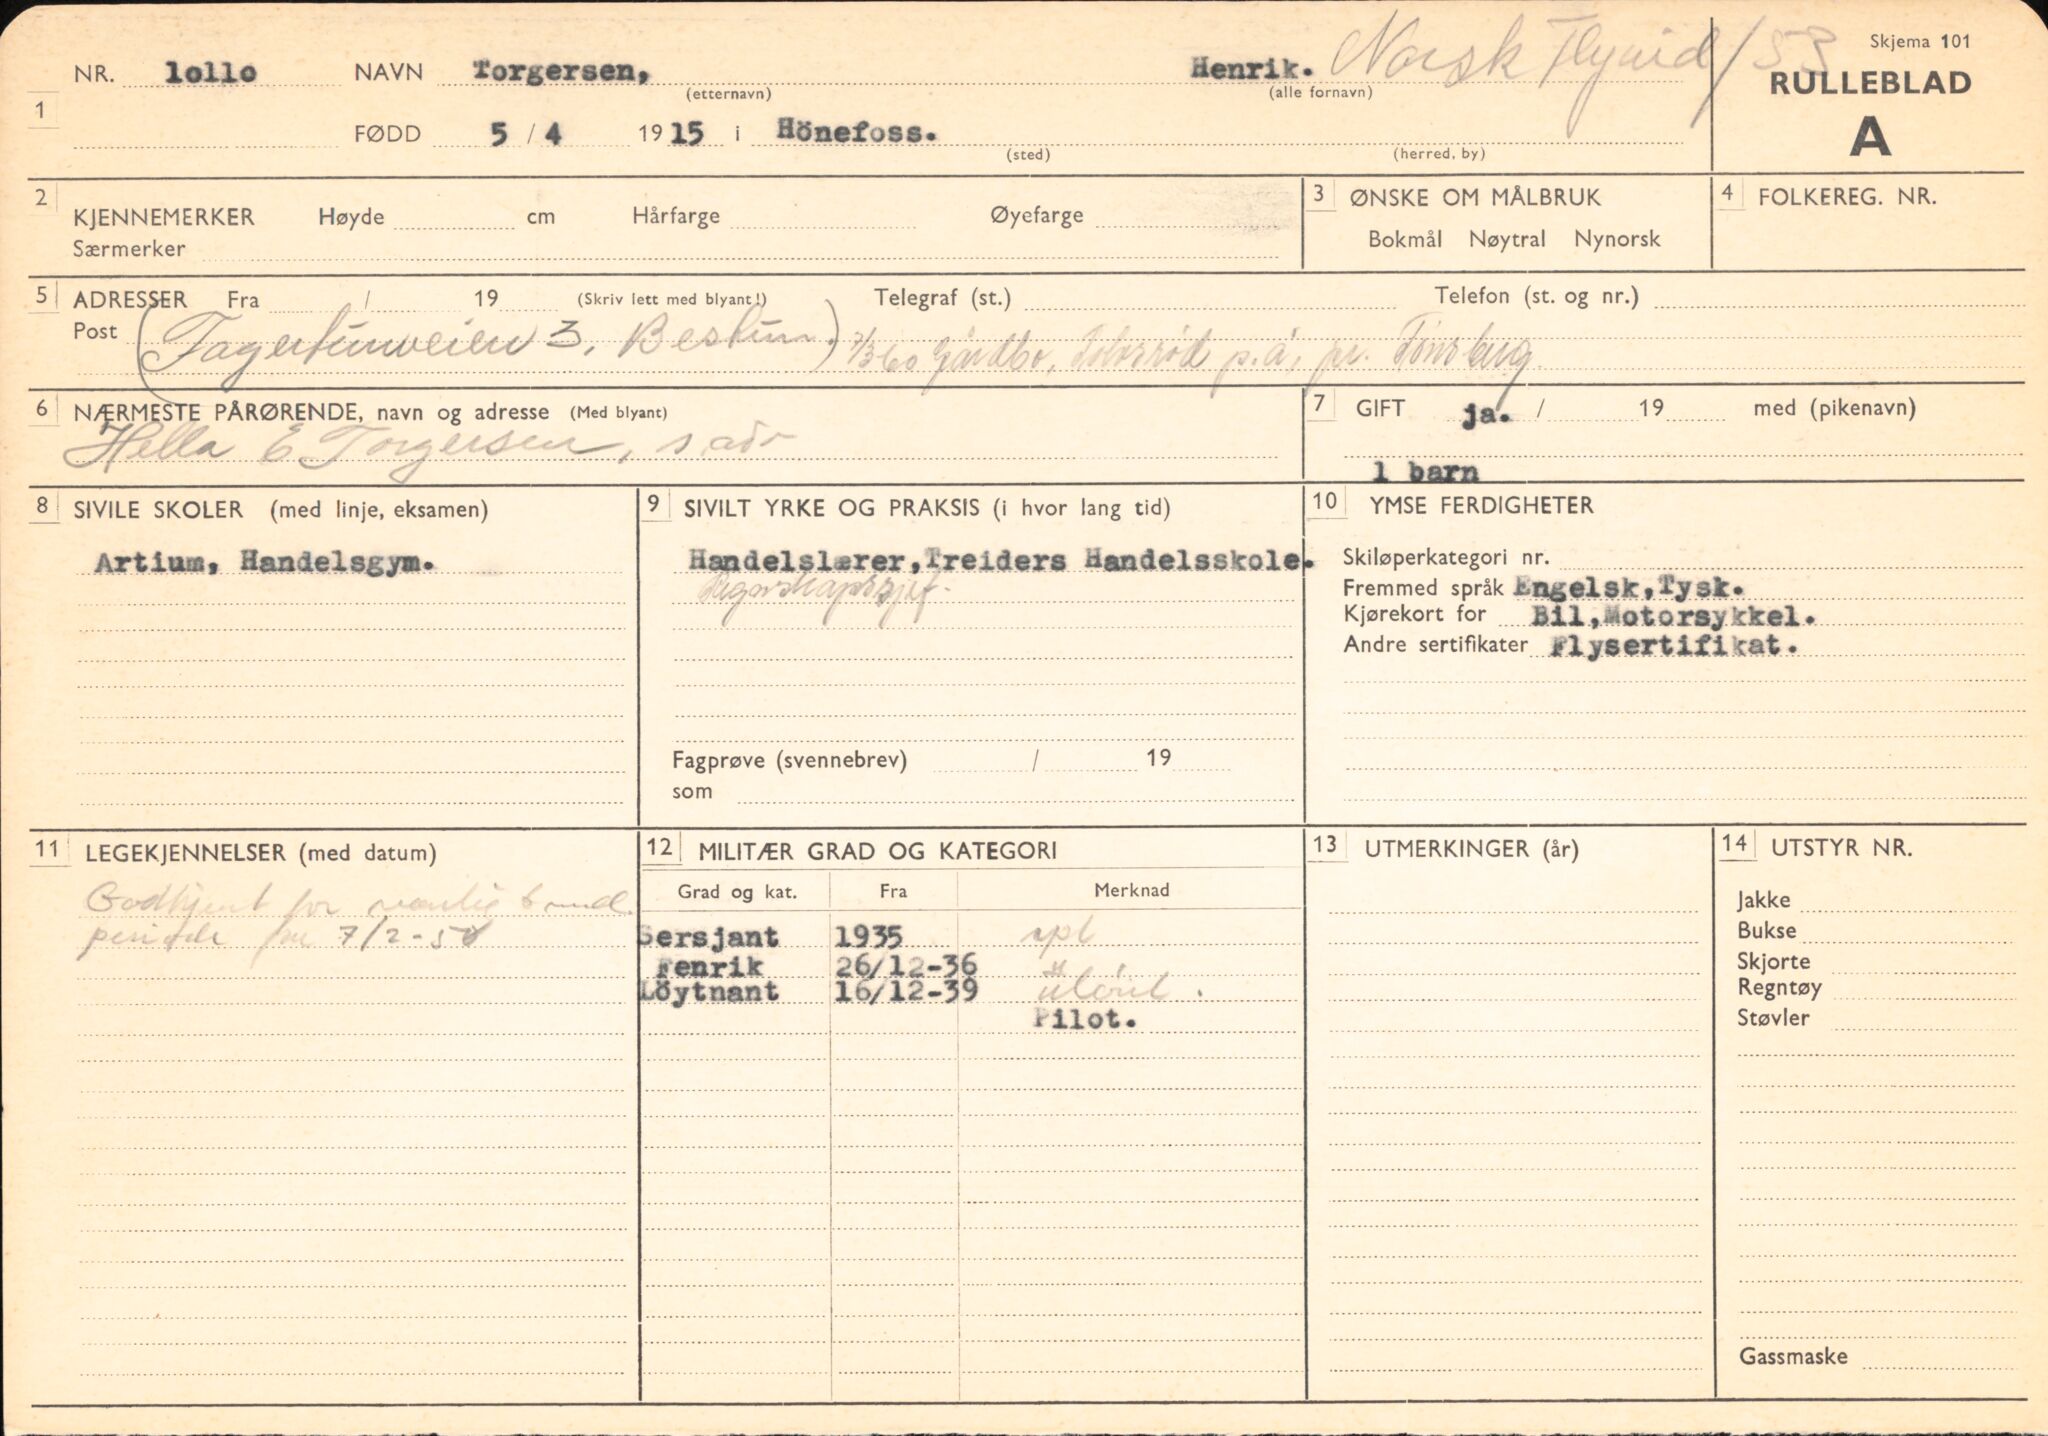 Skjema 101
NR. lollo NAVN Torgersen, Henrik. Norsk Flyvid/53
(etternavn) (alle fornavn)
RULLEBLAD
A
1
FØDD 5 / 4 1915 i Hönefoss.
(sted) (herred, by)
2 KJENNEMERKER Høyde cm Hårfarge Øyefarge
Særmerker
3 ØNSKE OM MÅLBRUK
Bokmål Nøytral Nynorsk
4 FOLKEREG. NR.
5 ADRESSER Fra / 19 (Skriv lett med blyant!) Telegraf (st.) Telefon (st. og nr.)
Post (Fagertunveien 3, Bestun.) 7/3 60 Gårdbo, p.å, pr. Tønsberg
6 NÆRMESTE PÅRØRENDE, navn og adresse (Med blyant)
Hella E Torgersen, s adr
7 GIFT ja. / 19 med (pikenavn)
1 barn
8 SIVILE SKOLER (med linje, eksamen)
Artium, Handelsgym.
9 SIVILT YRKE OG PRAKSIS (i hvor lang tid)
Handelslærer, Treiders Handelsskole.
Regnskapssjef.
Fagprøve (svennebrev) / 19
som
10 YMSE FERDIGHETER
Skiløperkategori nr.
Fremmed språk Engelsk, Tysk.
Kjørekort for Bil, Motorsykkel.
Andre sertifikater Flysertifikat.
11 LEGEKJENNELSER (med datum)
Godkjent for vanlig 6 mnd.
periode fra 7/2-50
12 MILITÆR GRAD OG KATEGORI
Grad og kat. Fra Merknad
Sersjant 1935 spl
Fenrik 26/12-36 "
Löytnant 16/12-39
Pilot.
13 UTMERKINGER (år)
14 UTSTYR NR.
Jakke
Bukse
Skjorte
Regntøy
Støvler
Gassmaske